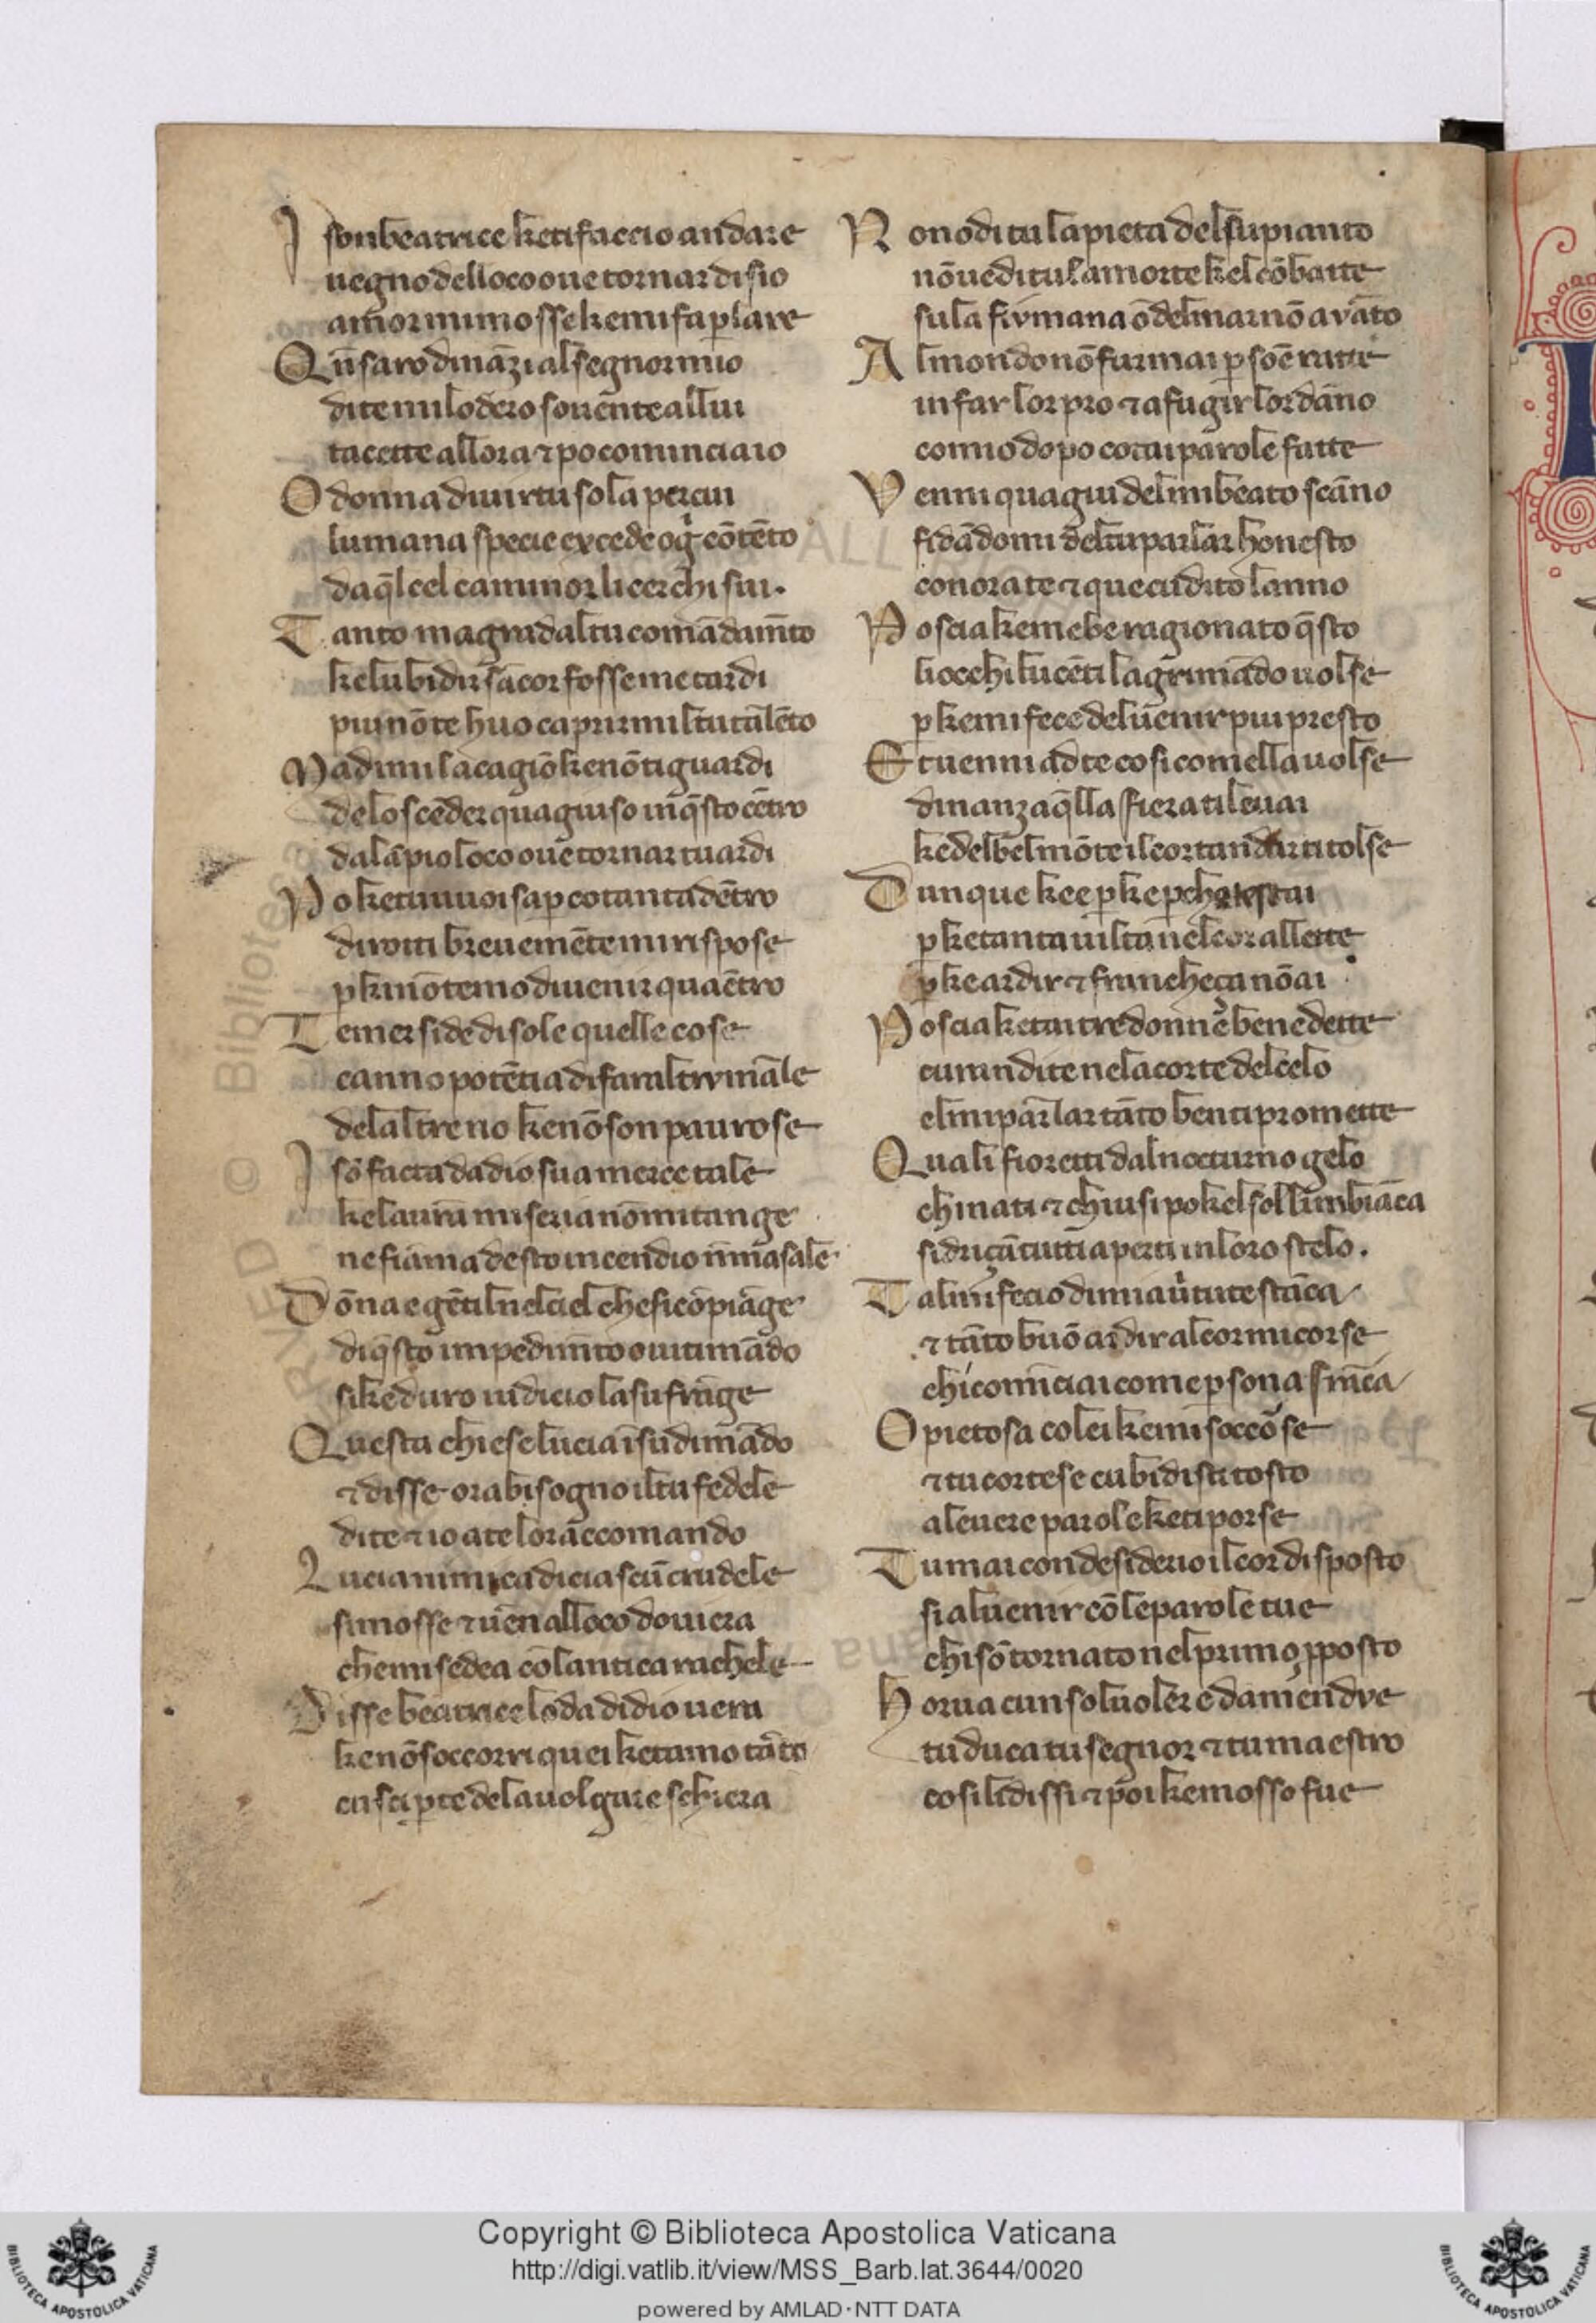 I son beatrice ke ti faccio andare
uegno del loco oue tornar disio
amor mi mosse ke mi fa ꝑlare
Qn̄ saro dināzi al segnor mio
di te mi lodero souēte a llui
tacette allora ⁊ po cominciaio
O donna di uirtu sola per cui
lumana specie excede oḡ cōtēto
da q̄l cel ca minor li cerchi sui.
Tanto magrada l tu comādam̄to
ke lubidir sācor fosse me tardi
piu nō te huo caprirmi l tu talēto
Ma dimi la cagiō ke nō ti guardi
de lo scēder qua giuso in q̄sto cētro
da lāpio loco oue tornar tu ardi
Po ke tu uuoi saꝑ cotanta dētro
dirotti breuemēte mi rispose
ꝑk i nō temo di uenir qua ētro
Temer si de di sole quelle cose
canno potētia di far altrui male
de laltre no ke nō son paurose
I sō facta da dio sua merce tale
ke la ura miseria nō mi tange
ne fiāma desto incendio nō masale
Dōna e gētil nel ciel che si cōpiāge
di q̄sto impedim̄to oui ti mādo
si ke duro iudicio la su frāge
Questa chiese lucia ī su dimādo
⁊ disse or a bisogno il tu fedele
di te ⁊ io a te lo rāccomando
Lucia nimica di ciascū crudele
si mosse ⁊ uēn al loco dou iera
che mi sedea cō lantica rachele
Disse beatrice loda di dio uera
ke nō soccorri quei ke tamo tāto
cusci ꝑ te de la uolgare schiera
Non odi tu la pieta del su pianto
nō uedi tu la morte kel cōbatte
su la fiumana ō del mar nō a vāto
Al mondo nō fur mai ꝑsōe ratte
in far lor pro ⁊ a fugir lor dāno
com io dopo cotai parole fatte
Venni qua giu del mi beato scāno
fidādomi del tu parlar honesto
conora te ⁊ que cudito lanno
Poscia ke mebe ragionato q̄sto
li occhi lucēti lagrimādo uolse
ꝑ ke mi fece del uenir piu presto
Et uenni ad te cosi comella uolse
dinanz a q̄lla fiera ti leuai
ke del bel mōte il cort andar ti tolse
Dunque ke e ꝑke ꝑche restai
ꝑke tanta uilta nel cor allette
ꝑke ardir ⁊ francheça nō ai
Poscia ke tai tre donne benedette
curan di te nela corte del celo
el mi parlar tāto ben ti promette
Quali fioretti dal nocturno gelo
chinati ⁊ chiusi po kel sol limbiāca
si driçā tutti aperti in loro stelo.
Tal mi fecio di mia u̇tute stāca
⁊ tāto buō ardir al cor mi corse
chi comīciai come ꝑsona frāca
O pietosa colei ke mi soccorse
⁊ tu cortese cubidisti tosto
a le uere parole ke ti porse
Tu mai con desiderio il cor disposto
si al uenir cō le parole tue
chi sō tornato nel primo ꝓposto
Hor ua cun sol uoler e damendve
tu duca tu segnor ⁊ tu maestro
cosi li dissi ⁊ poi ke mosso fue
Copyright © Biblioteca Apostolica Vaticana
http://digi.vatlib.it/view/MSS_Barb.lat.3644/0020
powered by AMLAD·NTT DATA
BIBLIOTECA APOSTOLICA VATICANA
BIBLIOTECA APOSTOLICA VATICANA